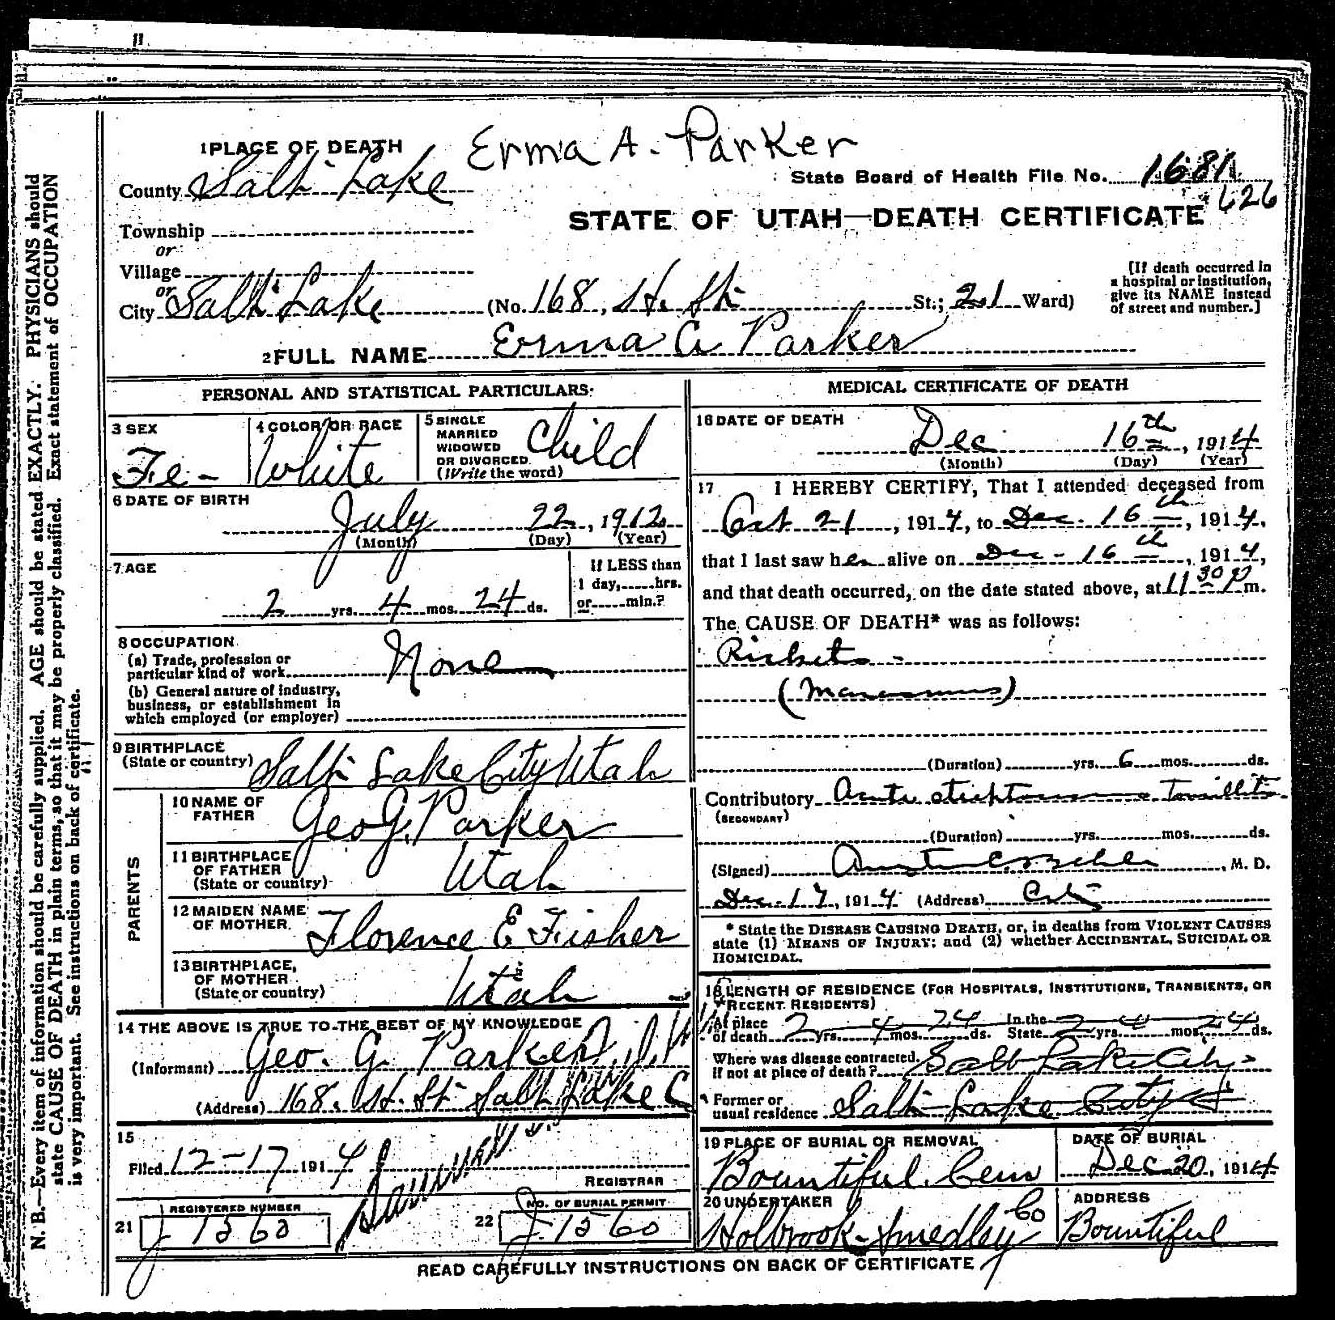 Erma A. Parker
1 PLACE OF DEATH
County Salt Lake
State Board of Health File No. 1681
626
STATE OF UTAH—DEATH CERTIFICATE
Township
or
Village
or
City Salt Lake (No. 168, H. St. St.; 21 Ward)
[If death occurred in a hospital or institution, give its NAME instead of street and number.]
2 FULL NAME Erma A Parker
PERSONAL AND STATISTICAL PARTICULARS.
3 SEX Fe-
4 COLOR OR RACE White
5 SINGLE MARRIED WIDOWED OR DIVORCED (Write the word) Child
6 DATE OF BIRTH
July 22, 1912
(Month) (Day) (Year)
7 AGE
2 yrs. 4 mos. 24 ds.
If LESS than 1 day, hrs. or min.?
8 OCCUPATION
(a) Trade, profession or particular kind of work None
(b) General nature of industry, business, or establishment in which employed (or employer)
9 BIRTHPLACE (State or country) Salt Lake City Utah
PARENTS
10 NAME OF FATHER Geo G. Parker
11 BIRTHPLACE OF FATHER (State or country) Utah
12 MAIDEN NAME OF MOTHER Florence E Fisher
13 BIRTHPLACE, OF MOTHER (State or country) Utah
14 THE ABOVE IS TRUE TO THE BEST OF MY KNOWLEDGE
(Informant) Geo. G. Parker
(Address) 168. H. St Salt Lake C
15
Filed 12-17 1914
REGISTRAR
21 REGISTERED NUMBER J 1560
22 NO. OF BURIAL PERMIT J-1560
MEDICAL CERTIFICATE OF DEATH
16 DATE OF DEATH
Dec 16th, 1914
(Month) (Day) (Year)
17 I HEREBY CERTIFY, That I attended deceased from
Oct 21, 1914, to Dec. 16th, 1914,
that I last saw her alive on Dec - 16th, 1914,
and that death occurred, on the date stated above, at 11 30 P m.
The CAUSE OF DEATH* was as follows:
Rickets -
(Marasmus)
(Duration) yrs. 6 mos. ds.
Contributory Acute Tonsillitis
(SECONDARY)
(Duration) yrs. mos. ds.
(Signed) , M. D.
Dec. 17, 1914 (Address) City
* State the DISEASE CAUSING DEATH, or, in deaths from VIOLENT CAUSES
state (1) MEANS OF INJURY; and (2) whether ACCIDENTAL, SUICIDAL OR
HOMICIDAL.
18 LENGTH OF RESIDENCE (FOR HOSPITALS, INSTITUTIONS, TRANSIENTS, OR
RECENT RESIDENTS)
At place of death 2 yrs. 4 mos. 24 ds. In the State 2 yrs. 4 mos. 24 ds.
Where was disease contracted, if not at place of death? Salt Lake City
Former or usual residence Salt Lake City
19 PLACE OF BURIAL OR REMOVAL Bountiful Cem
DATE OF BURIAL Dec 20, 1914
20 UNDERTAKER Holbrook-Smedley Co
ADDRESS Bountiful
READ CAREFULLY INSTRUCTIONS ON BACK OF CERTIFICATE
N. B.—Every item of information should be carefully supplied. AGE should be stated EXACTLY. PHYSICIANS should
state CAUSE OF DEATH in plain terms, so that it may be properly classified. Exact statement of OCCUPATION
is very important. See instructions on back of certificate.